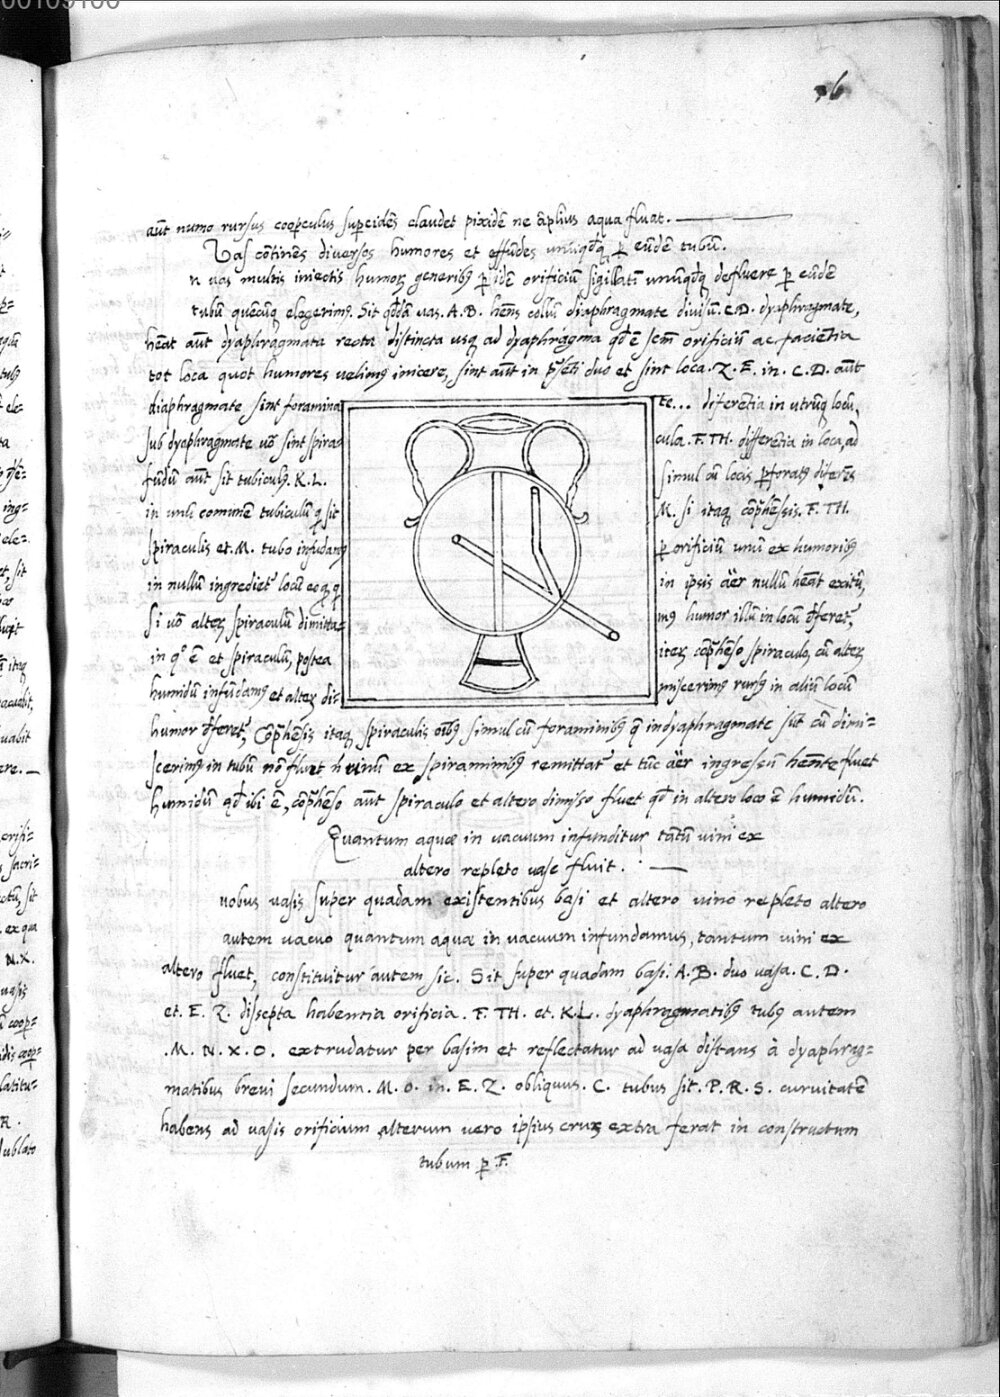 00109100
16
aūt numo rursus cooperculus supcidēs claudet pixidē ne āplius aqua fluat.
Vas cōtinēs diuersos humores et effūdes unūqdq̄ p eūdē tubū.
n uas multis iniectis humoꝝ generibꝰ p idē orificiū sigillatī unūqdq̄ defluere p eūdē
tubū quēcūq̄ elegerimꝰ. Sit qddā uas. A.B. hēns collū dyaphragmate diuisū. C.D. dyaphragmate,
hēat aūt dyaphragmata recta distincta usq̄ ad dyaphragma qd ē scm̄ orificiū ac facientia
tot loca quot humores uelimꝰ inicere, sint aūt in pn̄ti duo et sint loca. Z. E. in. C.D. aūt
diaphragmate sint foramina te... differētia in utrūq̄ locū,
sub dyaphragmate uō sint spira- cula. F. TH. differētia in loca, ad
fūdū aūt sit tubiculꝰ. K.L. simul cū locis pforatꝰ diferēs
in unū comunē tubiculū q sit M. si itaq̄ cōphēssis. F. TH.
spiraculis et. M. tubo infūdamꝰ p orificiū unū ex humoribꝰ
in nullū ingrediet locū eo q in ipsis aër nullū hēat exitū,
Si uō alteꝝ spiraculū dimitta- mꝰ humor illū in locū dferet,
in qo ē et spiraculū, postea iteꝝ cōphēso spiraculo, cū alteꝝ
humidū infūdamꝰ et alteꝝ di- miscerimꝰ rursꝰ in aliū locū
humor dferet, Cōphēsis itaq̄ spiraculis oībꝰ simul cū foraminibꝰ q in dyaphragmate sūt cū dimi-
scerimꝰ in tubū nō fluet h unū ex spiraminibꝰ remittat et tūc aër ingresū hēnte fluet
humidū qd ibi ē, cōphēso aūt spiraculo et altero dimisso fluet qd in altero loco ē humidū.
Quantum aquæ in vacuum infunditur tātū vini ex
altero repleto vase fluit.
uobus vasis super quadam existentibus basi et altero vino repleto altero
autem vacuo quantum aquæ in vacuum infundamus, tantum vini ex
altero fluet, constituitur autem sic. Sit super quadam basi. A.B. duo vasa. C.D.
et. E. Z. dissepta habentia orificia. F. TH. et. K.L. dyaphragmatibꝰ tubꝰ autem
.M. N. X. O. extrudatur per basim et reflectatur ad vasa distans à dyaphrag-
matibus brevi secundum. M. O. in. E. Z. obliquus. C. tubus sit. P. R. S. curvitatē
habens ad vasis orificium alterum vero ipsius crus extra ferat in constructum
tubum p. F.